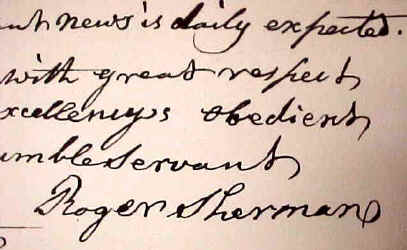 ant news is daily expected.
with great respect
xcellency's obedient
umble Servant
Roger Sherman